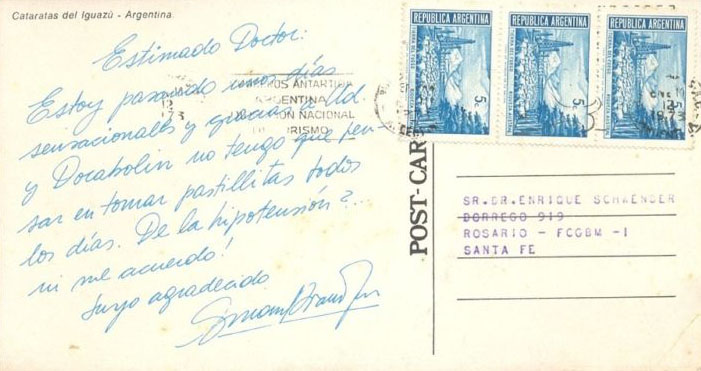 Cataratas del Iguazú - Argentina
Estimado Doctor:
Estoy pasando unos días
sensacionales y gracias a Ud.
y Dorabolin no tengo que pen-
sar en tomar pastillitas todos
los días. De la hipotensión?...
ni me acuerdo!
Suyo agradecido
ANTARTIDA
ARGENTINA
NACIONAL
TURISMO
12
1973
REPUBLICA ARGENTINA
5
REPUBLICA ARGENTINA
5
REPUBLICA ARGENTINA
5
POST-CAR
SR.DR.ENRIQUE SCHAENDER
DORREGO 919
ROSARIO - FCGBM -1
SANTA FE